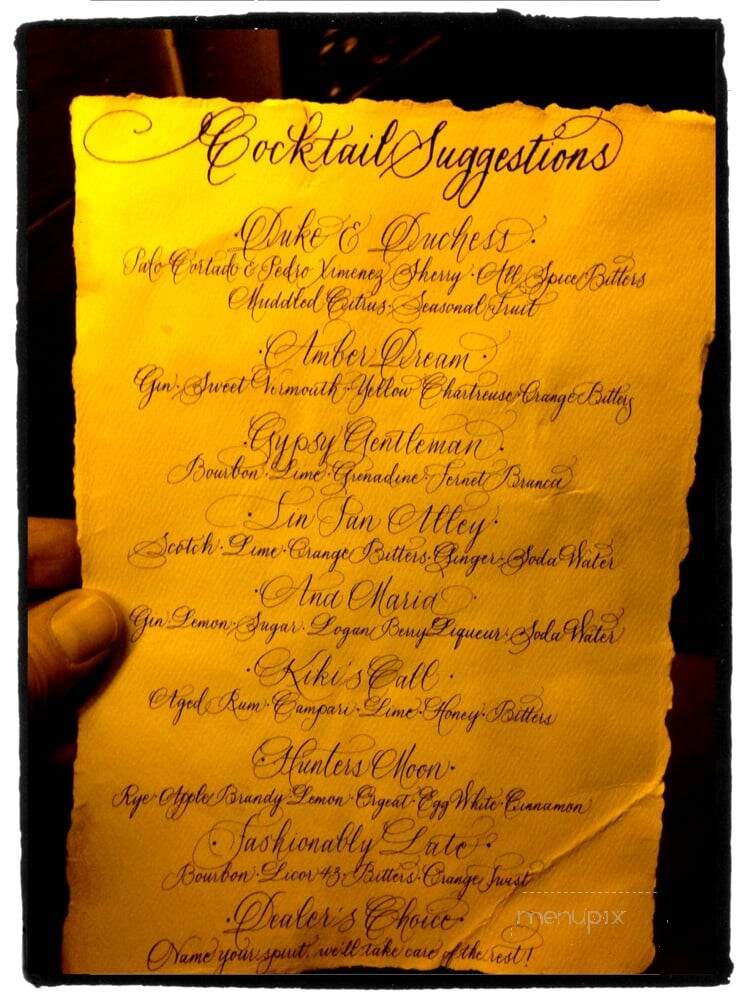 Cocktail Suggestions
·Duke & Duchess·
Palo Cortado & Pedro Ximenez Sherry · All Spice Bitters
Muddled Citrus · Seasonal Fruit
·Amber Dream·
Gin · Sweet Vermouth · Yellow Chartreuse · Orange Bitters
·Gypsy Gentleman·
Bourbon · Lime · Grenadine · Fernet Branca
·Tin Pan Alley·
Scotch · Lime · Orange Bitters · Ginger · Soda Water
·Ana Maria·
Gin · Lemon · Sugar · Logan Berry Liqueur · Soda Water
·Kiki's Call·
Aged Rum · Campari · Lime · Honey · Bitters
·Hunters Moon·
Rye · Apple Brandy · Lemon · Orgeat · Egg White · Cinnamon
·Fashionably Late·
Bourbon · Licor 43 · Bitters · Orange Twist
·Dealer's Choice·
Name your spirit, we'll take care of the rest!
menupix